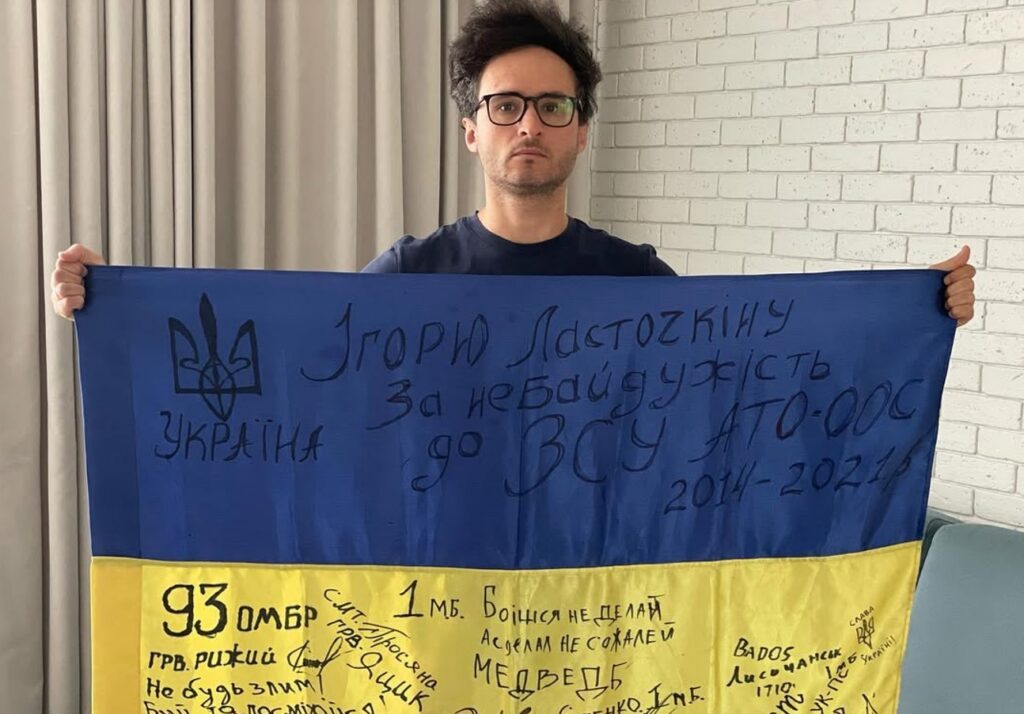 Ігорю Ласточкіну
За небайдужість
до ЗСУ АТО-ООС
2014-2021
УКРАЇНА
93 ОМБР
ГРВ. РИЖИЙ
Не будь злим!
смт. Просяна
ГРВ. ЯЩИК
1 М.Б.
Боішся не делай
А сделал не сожалей
МЕДВЕДЬ
1 М.Б.
BADOS
Лисичанськ
1710
1 МБ
СЛАВА
УКРАЇНІ!